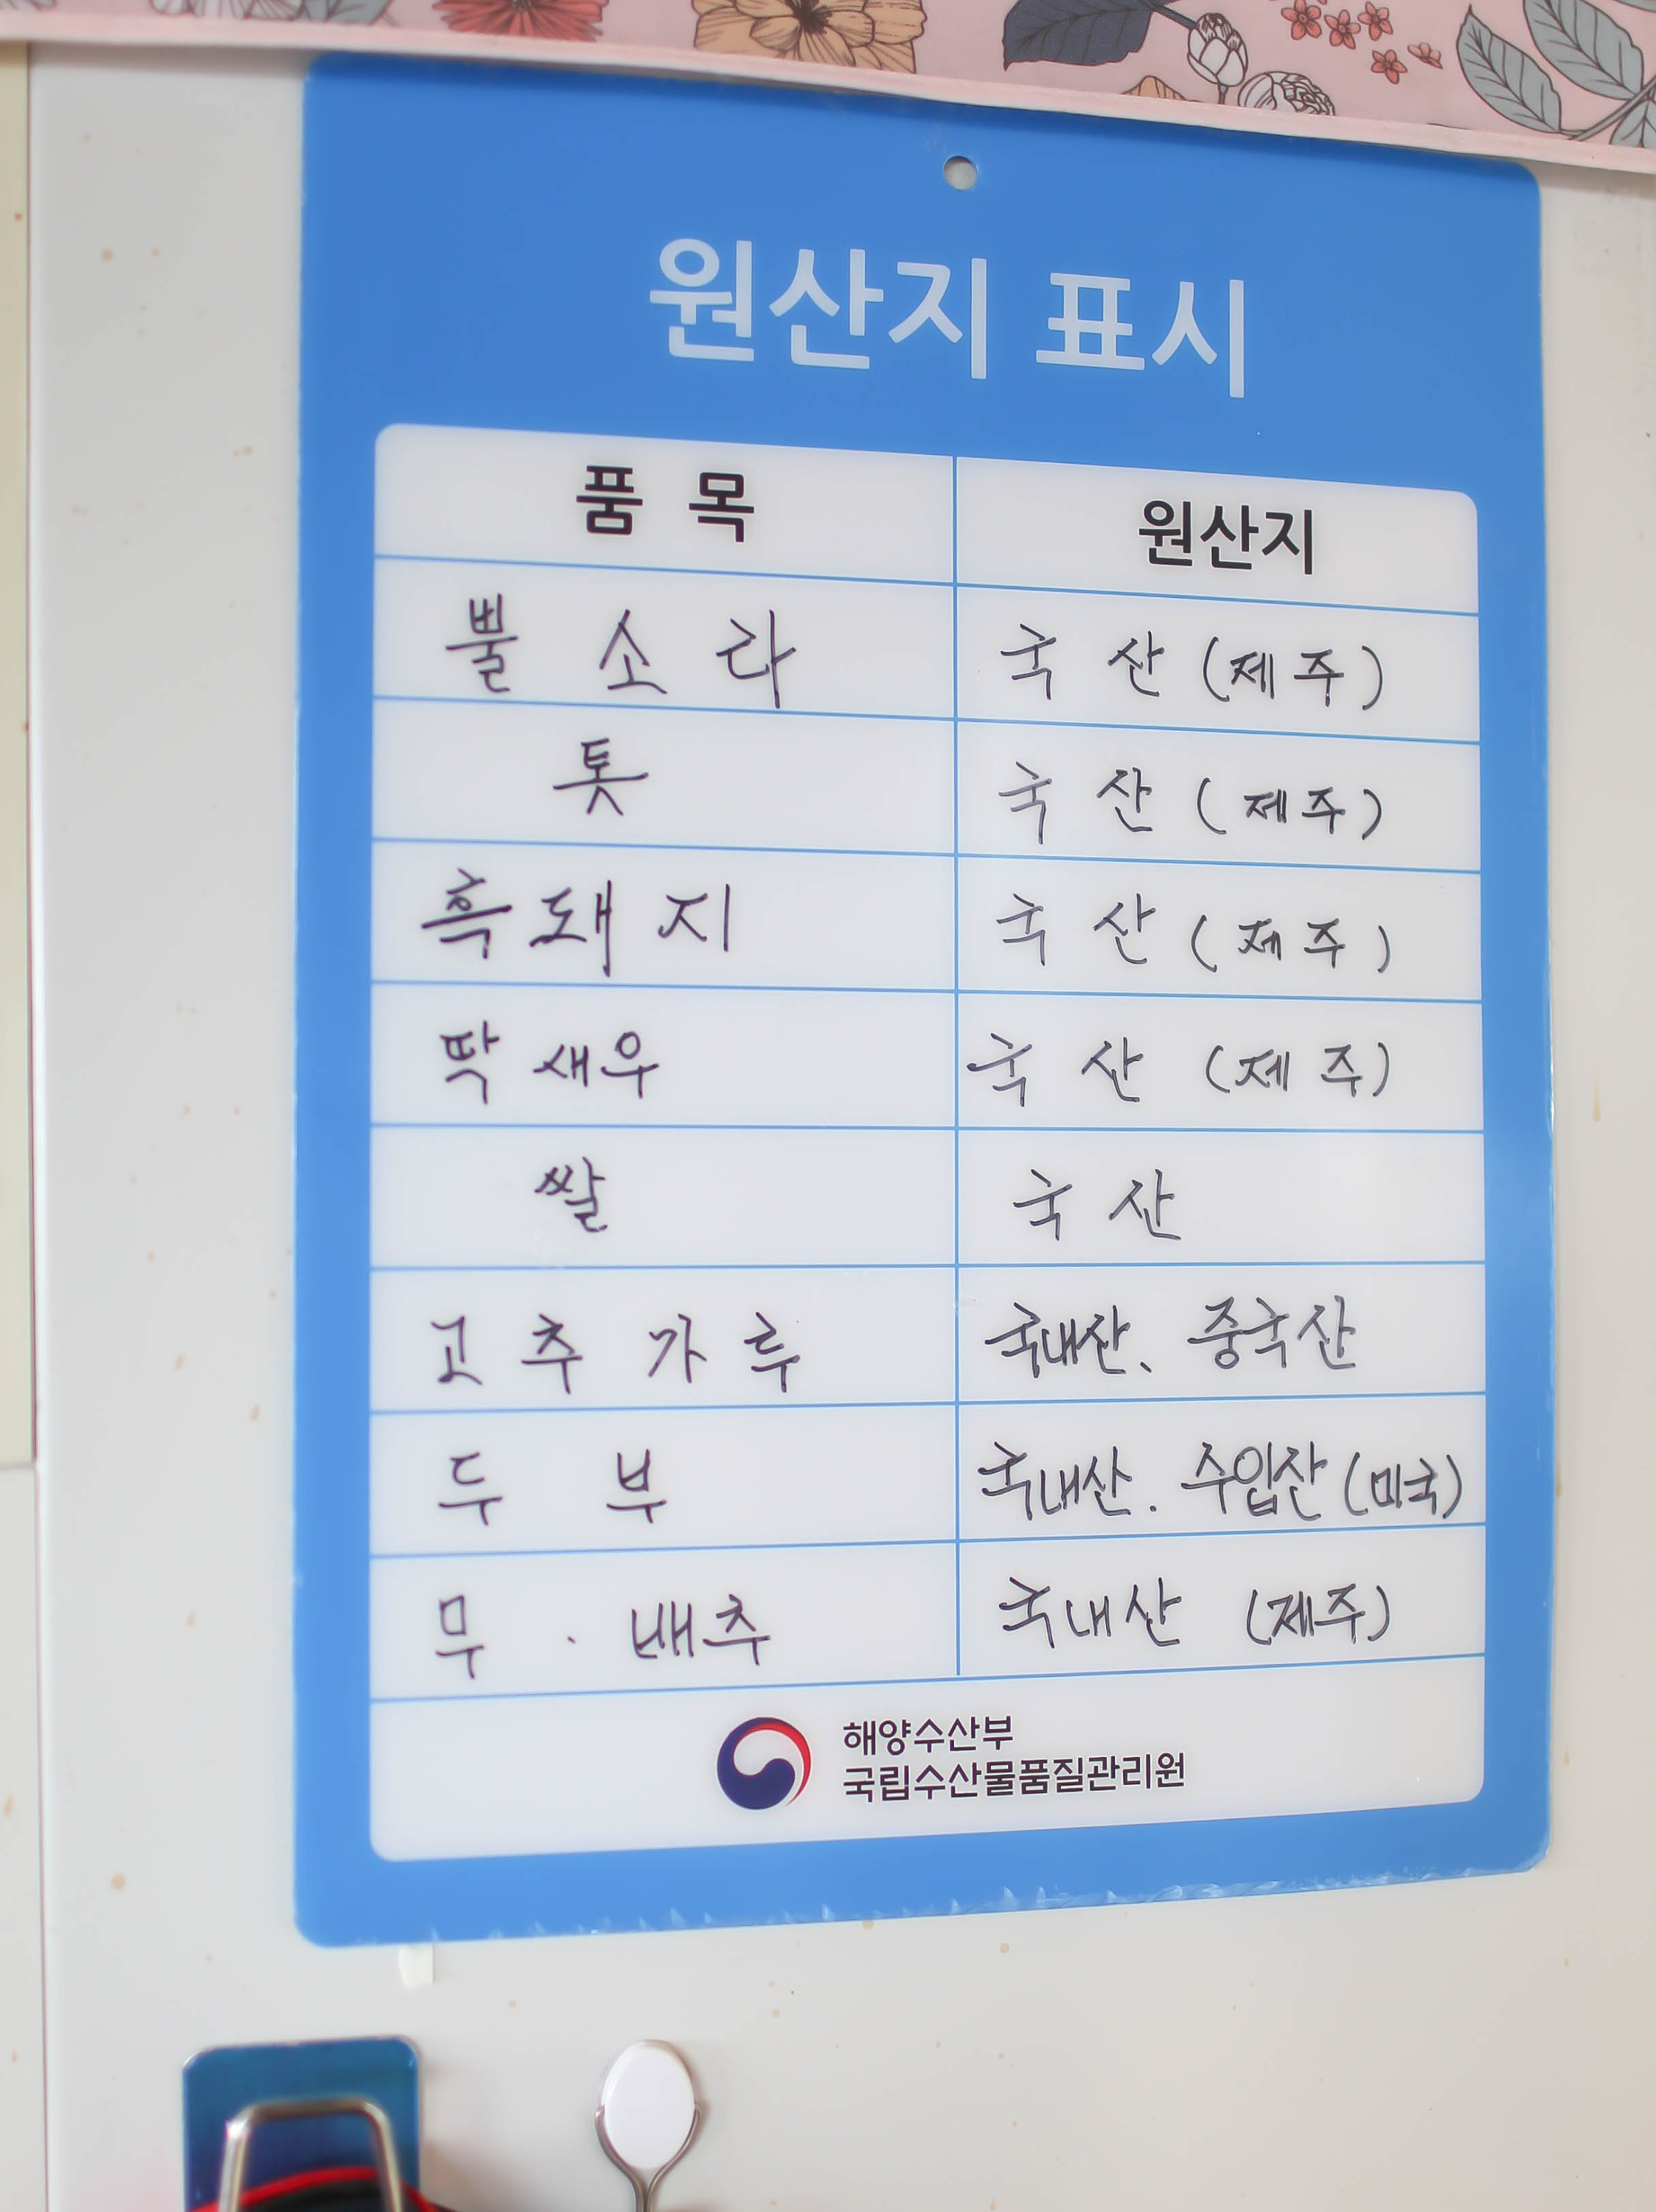 원산지 표시
품 목 원산지
뿔 소 라 국 산 (제 주)
톳 국 산 ( 제 주)
흑 돼 지 국 산 ( 제 주 )
딱 새우 국 산 (제 주)
쌀 국 산
고 추 가 루 국내산、 중국산
두 부 국내산. 수입산 (미국)
무 · 배추 국내산 (제주)
해양수산부
국립수산물품질관리원